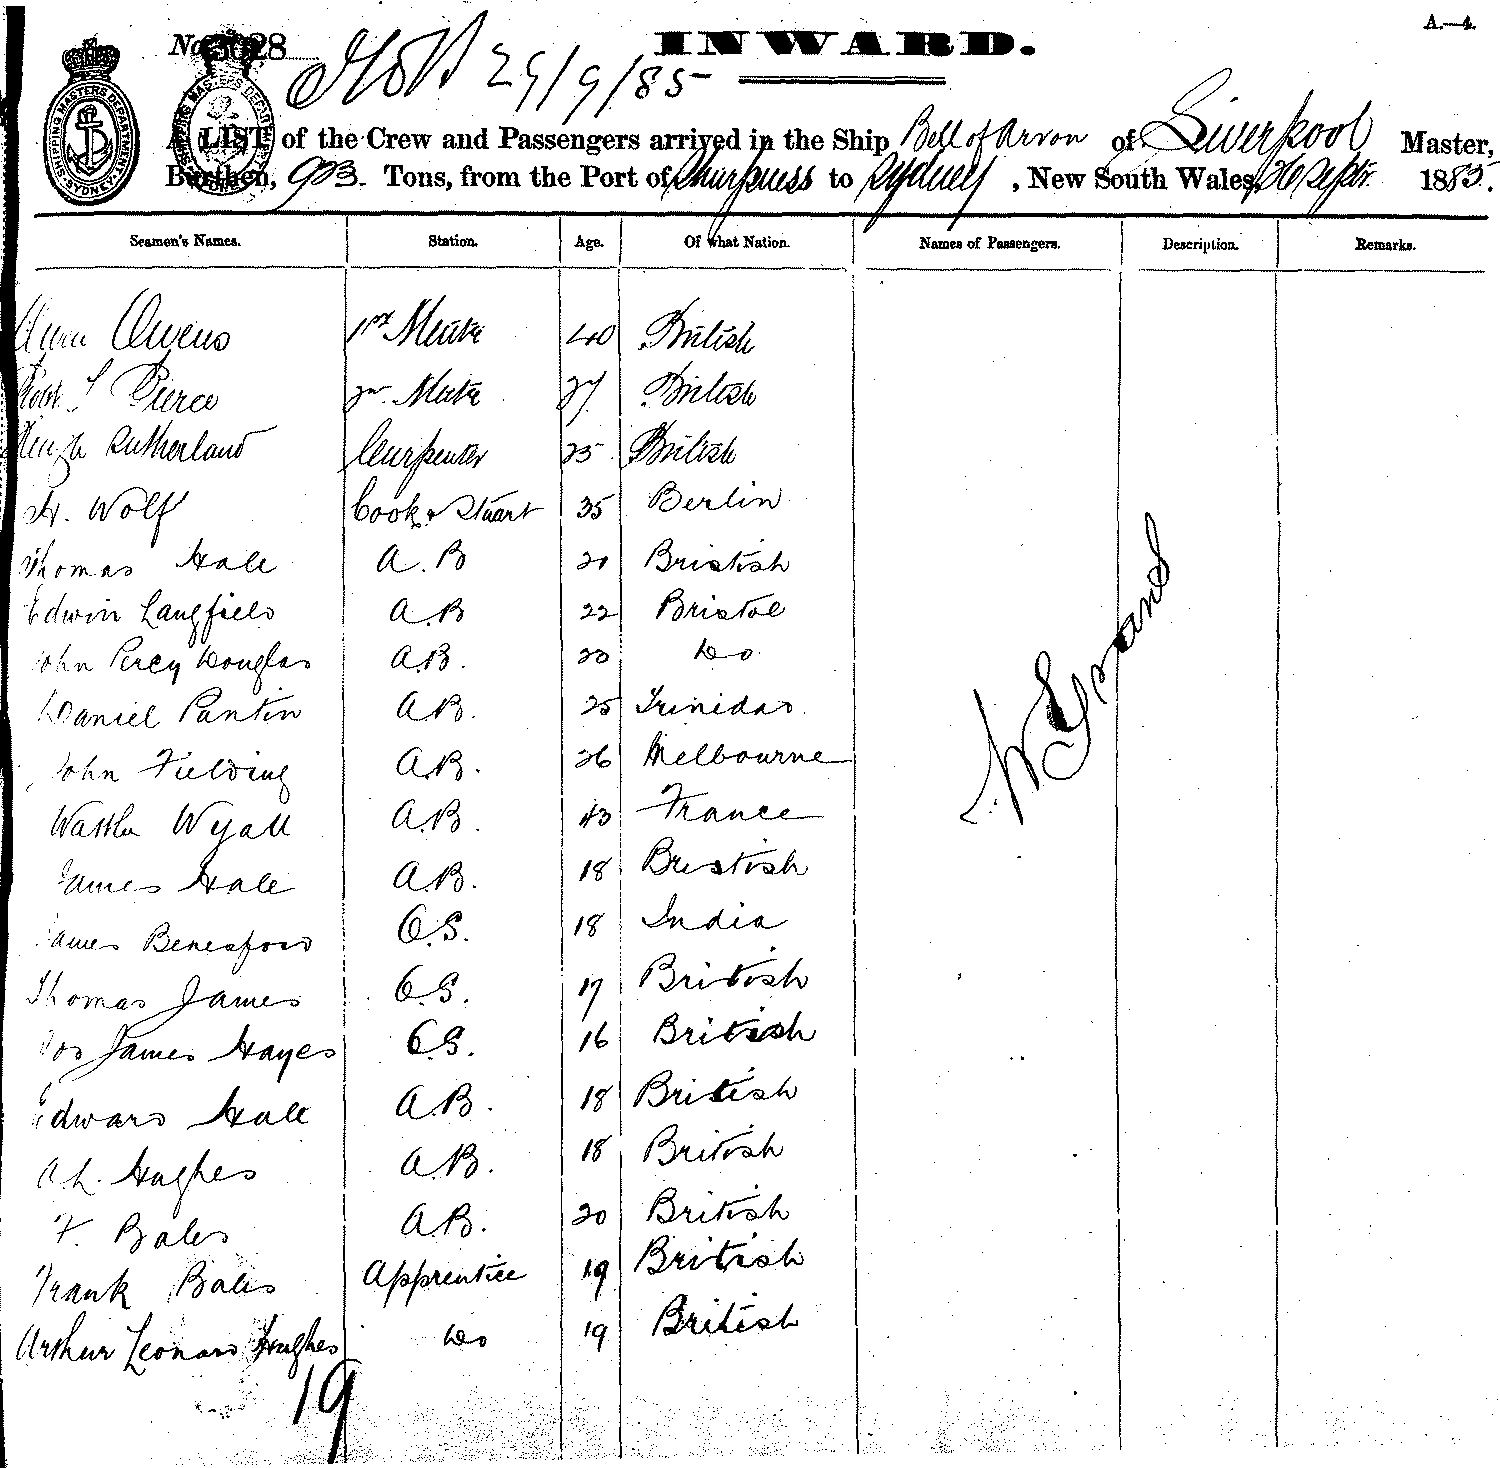 A.—4.
No. 3028
INWARD.
29/9/85
SHIPPING MASTERS DEPARTMENT SYDNEY
A LIST of the Crew and Passengers arrived in the Ship Bell of Arvon of Liverpool Master,
Burthen, 903. Tons, from the Port of Sharpness to Sydney, New South Wales, 26 Septr. 1885.
Seamen's Names. Station. Age. Of what Nation. Names of Passengers. Description. Remarks.
Owens 1st Mate 40 British
Robt Pierce 2nd Mate 27 British
Hugh Sutherland Carpenter 25 British
H. Wolf Cook & Stuart 35 Berlin
Thomas Hale A.B 20 Bristish
Edwin Langfield A B 22 Bristol
John Percy Douglas A.B. 20 Do
Daniel Pantin A B. 25 Trinidad.
John Fielding A.B. 26 Melbourne
Wyatt A.B. 43 France
James Hale A.B. 18 Bristish
James Beresford O.S. 18 India
Thomas James O.S. 17 British
James Hayes O.S. 16 British
Edward Hall A.B. 18 British
A.L. Hughes A.B. 18 British
F. Bales A.B. 20 British
Frank Bales Apprentice 19 British
Arthur Leonard Hughes Do 19 British
19